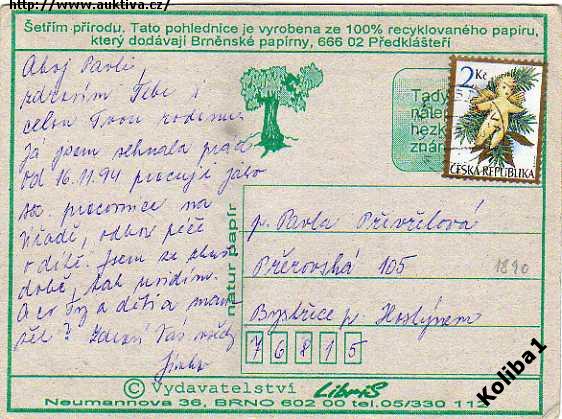 http://www.auktiva.cz/
Šetřím přírodu. Tato pohlednice je vyrobena ze 100% recyklovaného papíru,
který dodávají Brněnské papírny, 666 02 Předklášteří
Ahoj Pavli
zdravím Tebe i
celou Tvou rodinu.
Já jsem sehnala prác
Od 16.11.94 pracuji jako
soc. pracovnice na
úřadě, odbor péče
o dítě. Jsem ve zkuš
době, tak uvidím.
A co Ty a děti a man
žel? Zdraví Vás všechny
Jirka
Tady
nalep
hezk
znám
2 Kč
ČESKÁ REPUBLIKA
natur papír
p. Pavla
Přerovská 105
1890
Bystřice p. Hostýnem
7 6 8 1 5
© Vydavatelství Libris
Neumannova 36, BRNO 602 00 tel.05/330 11
Koliba1